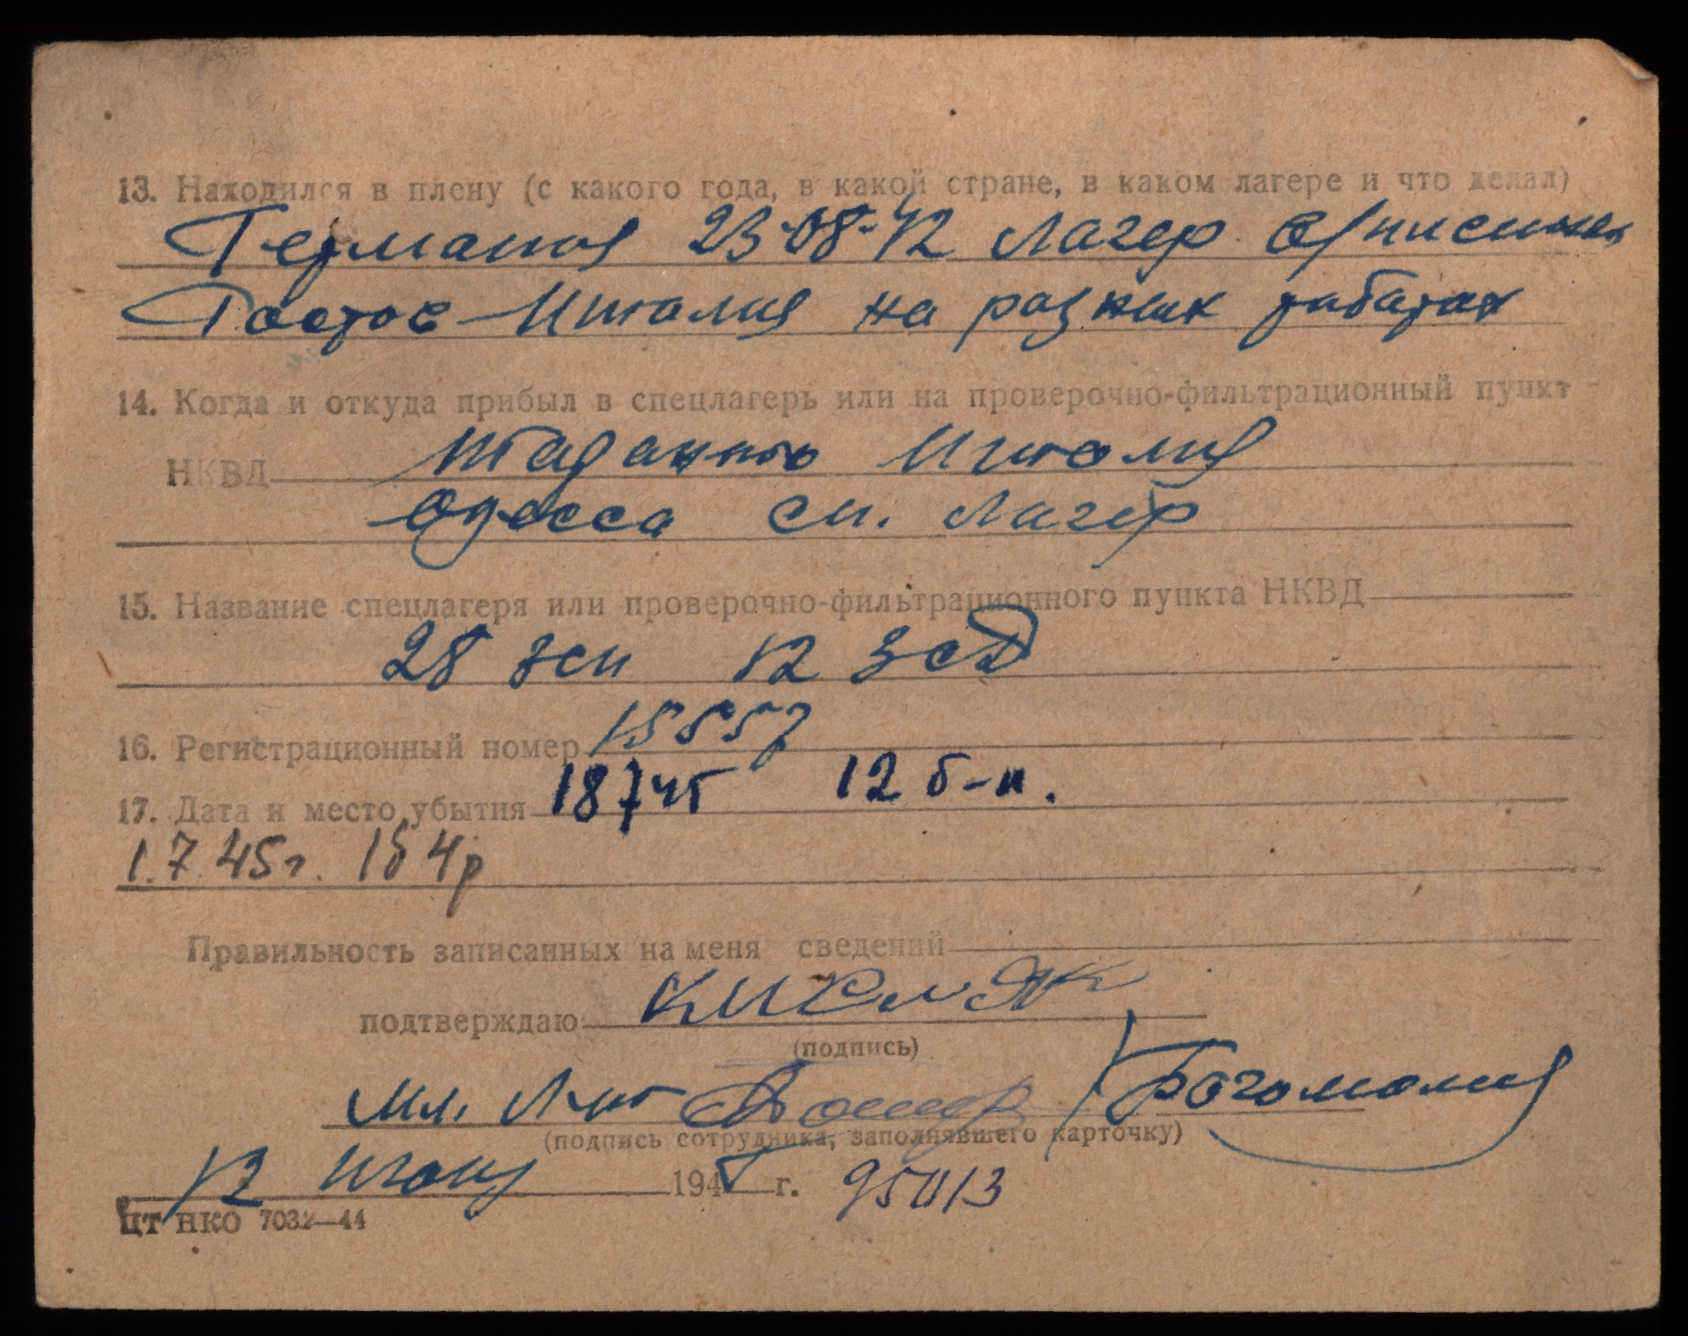 13. Находился в плену (с какого года, в какой стране, в каком лагере и что делал)
Германия 23-08-42 Лагер
Италия на разних работах
14. Когда и откуда прибыл в спецлагерь или на проверочно-фильтрационный пункт
НКВД Таранто Италия
Одесса сп. Лагер
15. Название спецлагеря или проверочно-фильтрационного пункта НКВД
28 зсп 12 зсд
16. Регистрационный номер 15557
17. Дата и место убытия 18745 12 б-н.
1.7.45г. 1б 4р
Правильность записанных на меня сведений
подтверждаю Кисляк
(подпись)
Мл. Лит
(подпись сотрудника, заполнявшего карточку)
12 июня 1945 г. 95013
ЦТ НКО 7032—44